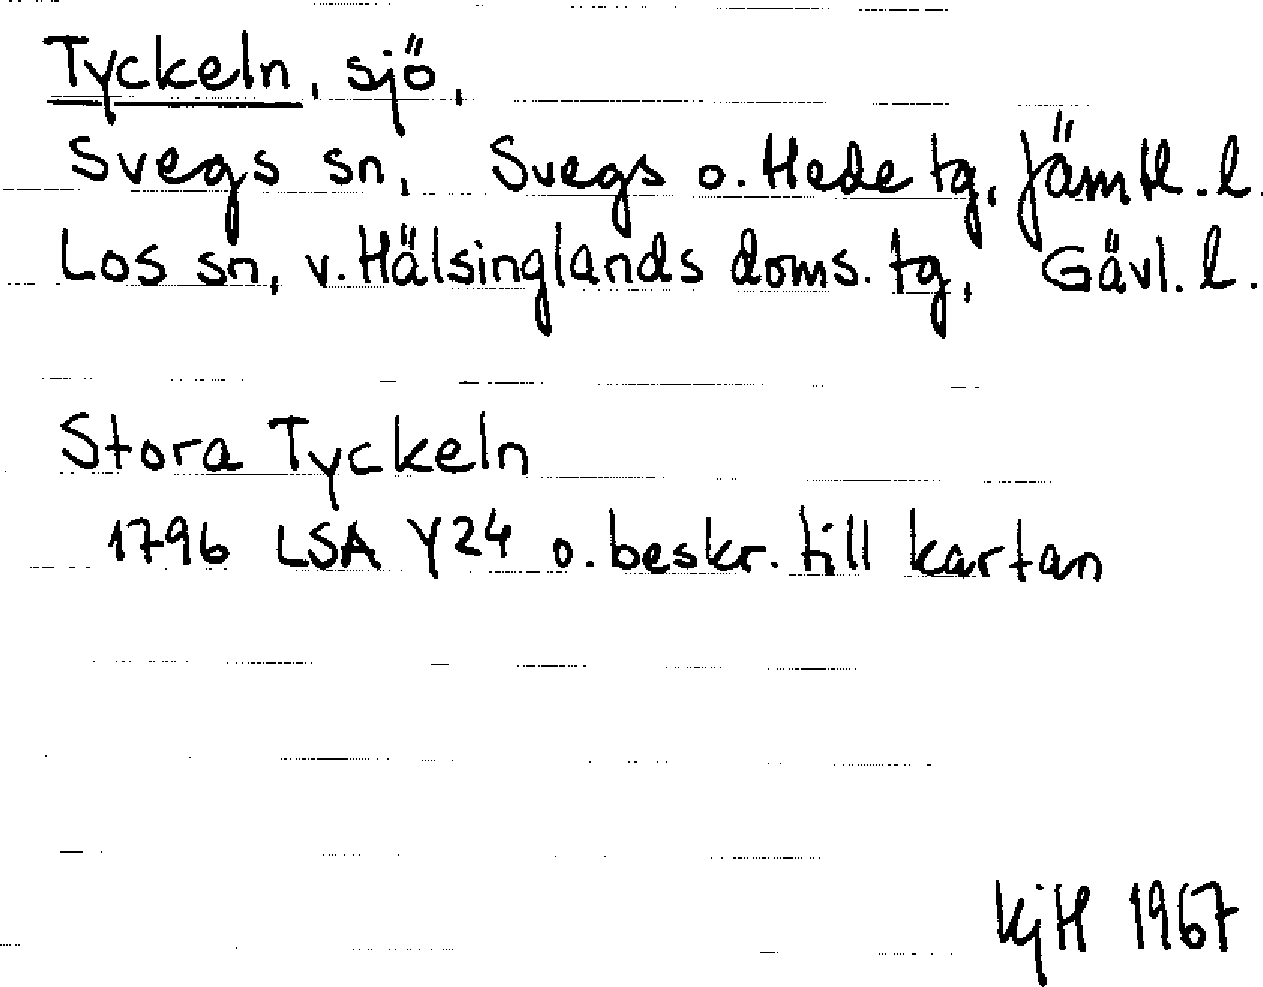 Tyckeln, sjö,
Svegs sn, Svegs o. Hede tg, Jämtl. l.
Los sn, v. Hälsinglands doms. tg, Gävl. l.
Stora Tyckeln
1796 LSA Y24 o. beskr. till kartan
KjH 1967